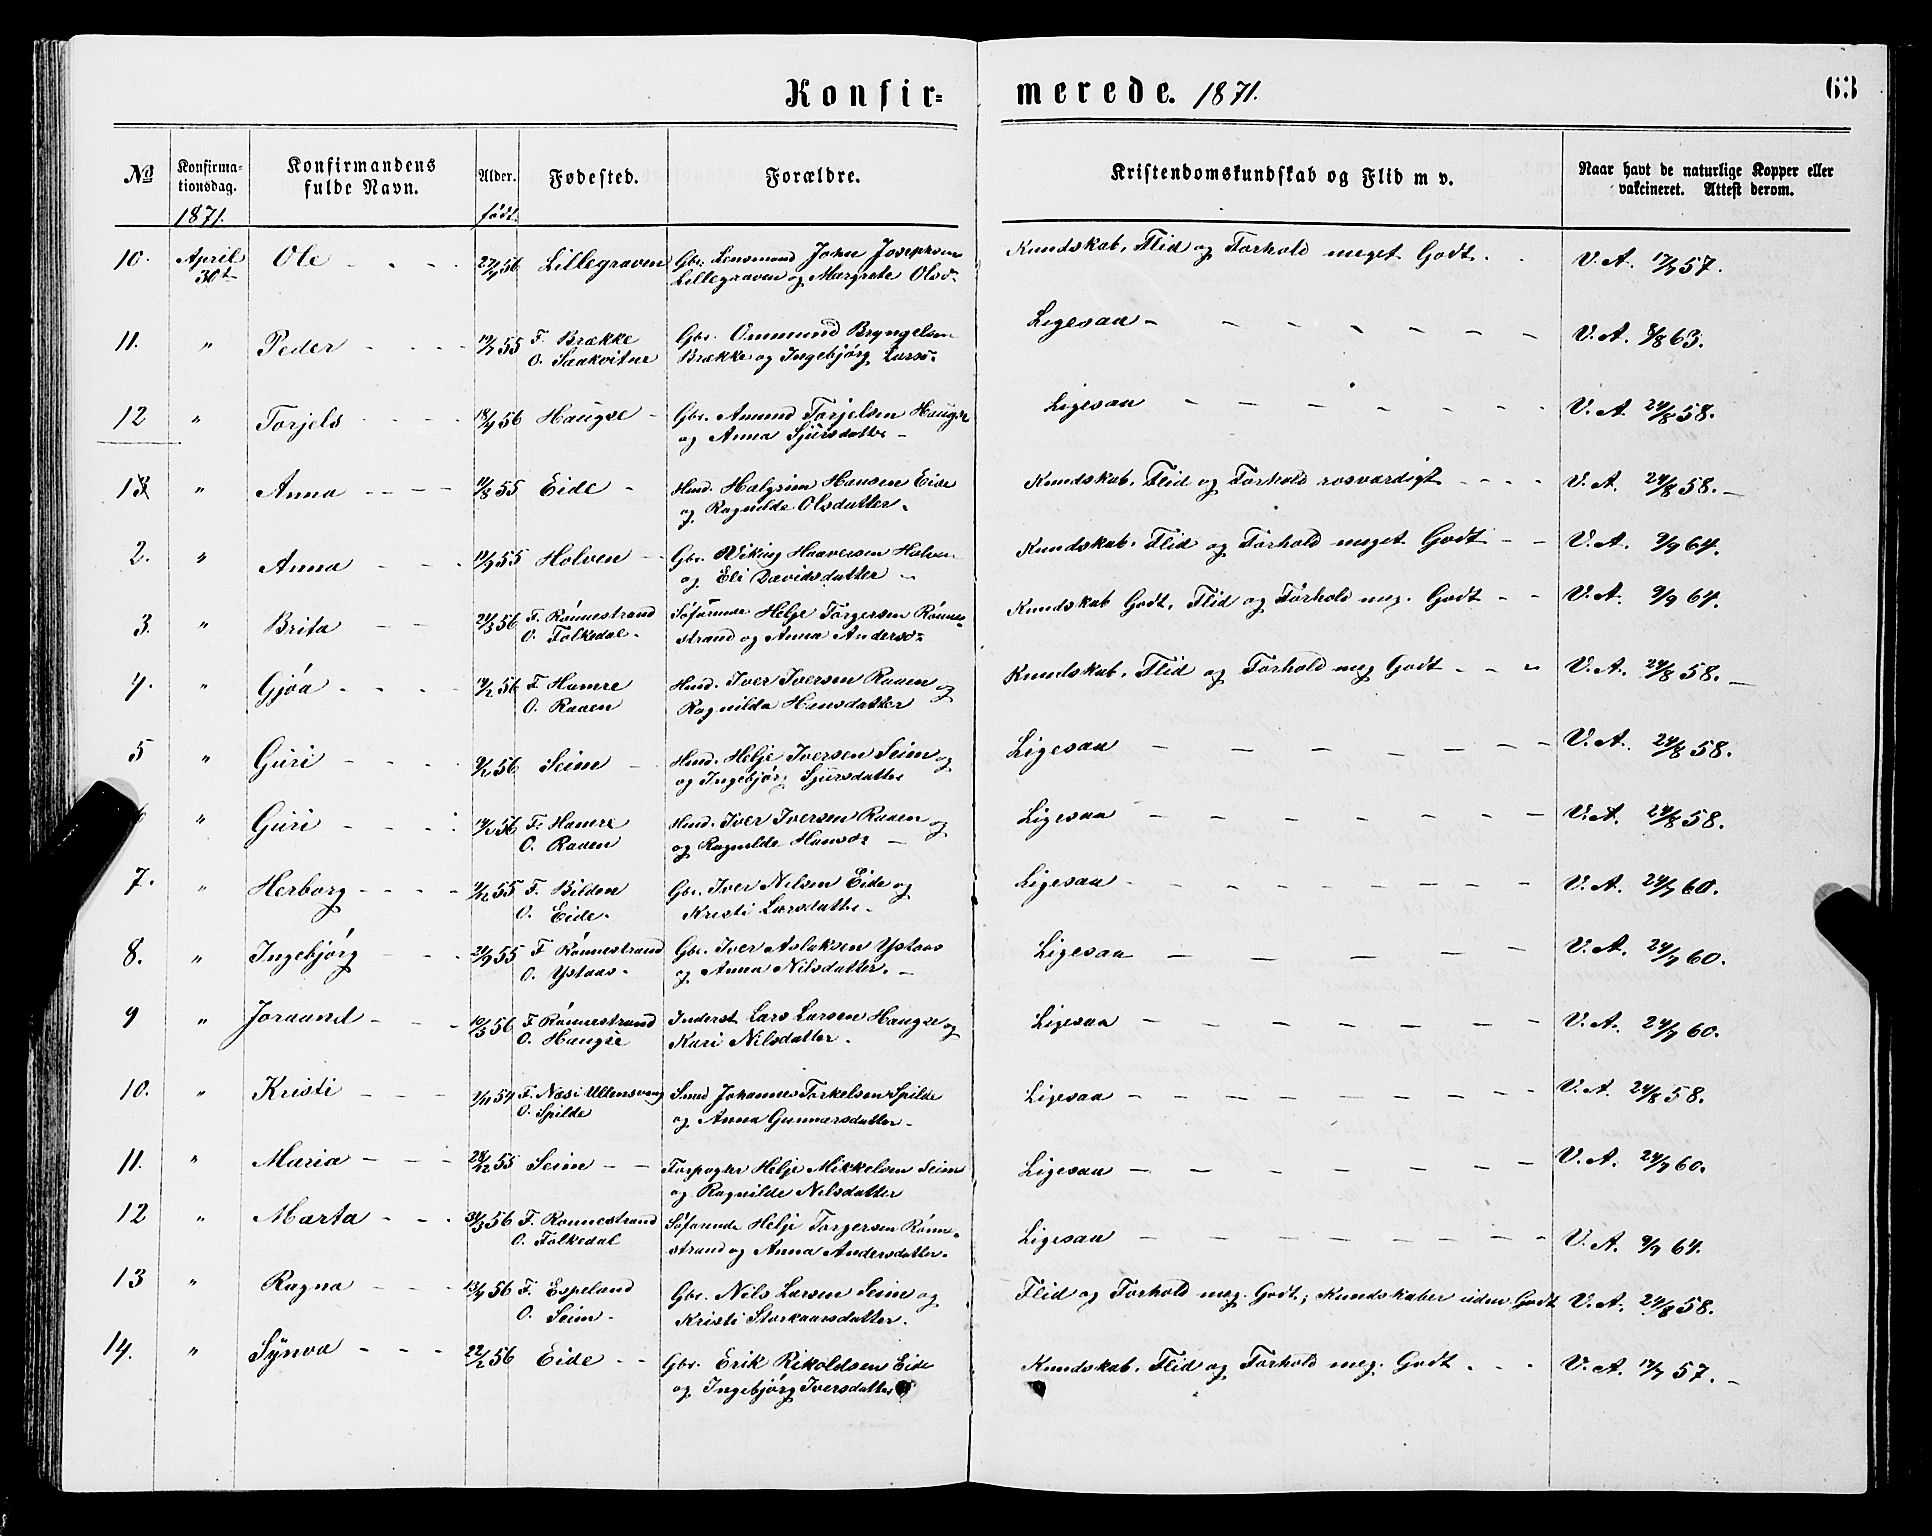 Konfir=
merede. 1871.
63
No
Konfirma-
tionsdag.
1871.
Konfirmandens
fulde Navn.
Alder.
födt.
Fødested.
Forældre.
Kristendomskundskab og Flid m v.
Naar havt de naturlige Kopper eller
vakcineret. Attest derom.
10. April Ole 27/9 56 Lillegraven Gbr. Lensmand John Josephsen Kundskab, Flid og Forhold meget Godt. V. A. 17/7 57.
30t Lillegraven og Margrete Olsd.
11. " Peder 19/7 55 F. Brække Gbr. Ommund Bryngelsen Ligesaa V. A. 8/8 63.
O. Saakvitne Brække og Ingebjørg Larsd.
12 " Torjels 18/4 56 Haugse Gbr. Amund Torjelsen Haugse Ligesaa V. A. 24/8 58.
og Anna Sjursdatter
1 " Anna 11/8 55 Eide Hmd. Halgrim Hansen Eide Kundskab, Flid og Forhold rosværdigt V. A. 24/8 58.
og Ragnilde Olsdatter.
2. " Anna 19/9 55 Holven Gbr. Viking Haaversen Holven Kundskab, Flid og Forhold meget Godt V. A. 9/9 64.
og Eli Davidsdatter
3. " Brita 24/3 56 F. Rönnestrand Söfarende Helje Torgersen Rönne- Kundskab Godt, Flid og Forhold meg. Godt V. A. 9/9 64.
O. Folkedal. strand og Anna Andersd.
4. " Gjöa 14/2 56 F. Hamre Hmd. Iver Iversen Raaen og Kundskab, Flid og Forhold meg Godt V. A. 24/8 58.
O. Raaen Ragnilda Hansdatter
5 " Guri 9/2 56 Seim Hmd. Helje Iversen Seim og Ligesaa V. A. 24/8 58.
og Ingebjörg Sjursdatter
" Guri 14/2 56 F. Hamre Hmd. Iver Iversen Raaen og Ligesaa V. A. 24/8 58.
O. Raaen og Ragnilde Hansd.
7. " Herborg 9/12 55 F. Bilden Gbr. Iver Nilsen Eide og Ligesaa V. A. 24/7 60.
O. Eide. Kristi Larsdatter.
8. " Ingebjörg 24/9 55 F. Rönnestrand Gbr. Iver Aslaksen Ystaas Ligesaa V. A. 24/7 60.
O. Ystaas. og Anna Nilsdatter.
9 " Joraand 10/3 56 F. Rönnestrand Inderst Lars Larsen Haugse og Ligesaa V. A. 24/7 60.
O. Haugse Kari Nilsdatter.
10. " Kristi F. Næs i Ullensvang Smed Johannes Torkelsen Spilde Ligesaa V. A. 24/8 58.
O. Spilde og Anna Gunnarsdatter
11. " Maria 28/12 55 Seim Forpagter Helje Mikkelsen Seim Ligesaa V. A. 24/7 60.
og Ragnilde Nilsdatter
12 " Marta 24/3 56 F. Rönnestrand Söfarende Helje Torgersen Rönne- Ligesaa V. A. 9/9 64.
O. Folkedal strand og Anna Andersdatter.
13 " Ragna 13/4 56 F. Espeland Gbr. Nils Larsen Seim og Flid og Forhold meg. Godt; Kundskaber uden Godt V. A. 24/8 58.
O. Seim Kristi Storkaarsdatter.
14. " Synva 22/2 56 Eide Gbr. Erik Rikoldsen Eide Kundskab, Flid og Forhold meg. Godt V. A. 17/7 57.
og Ingebjörg Iversdatter